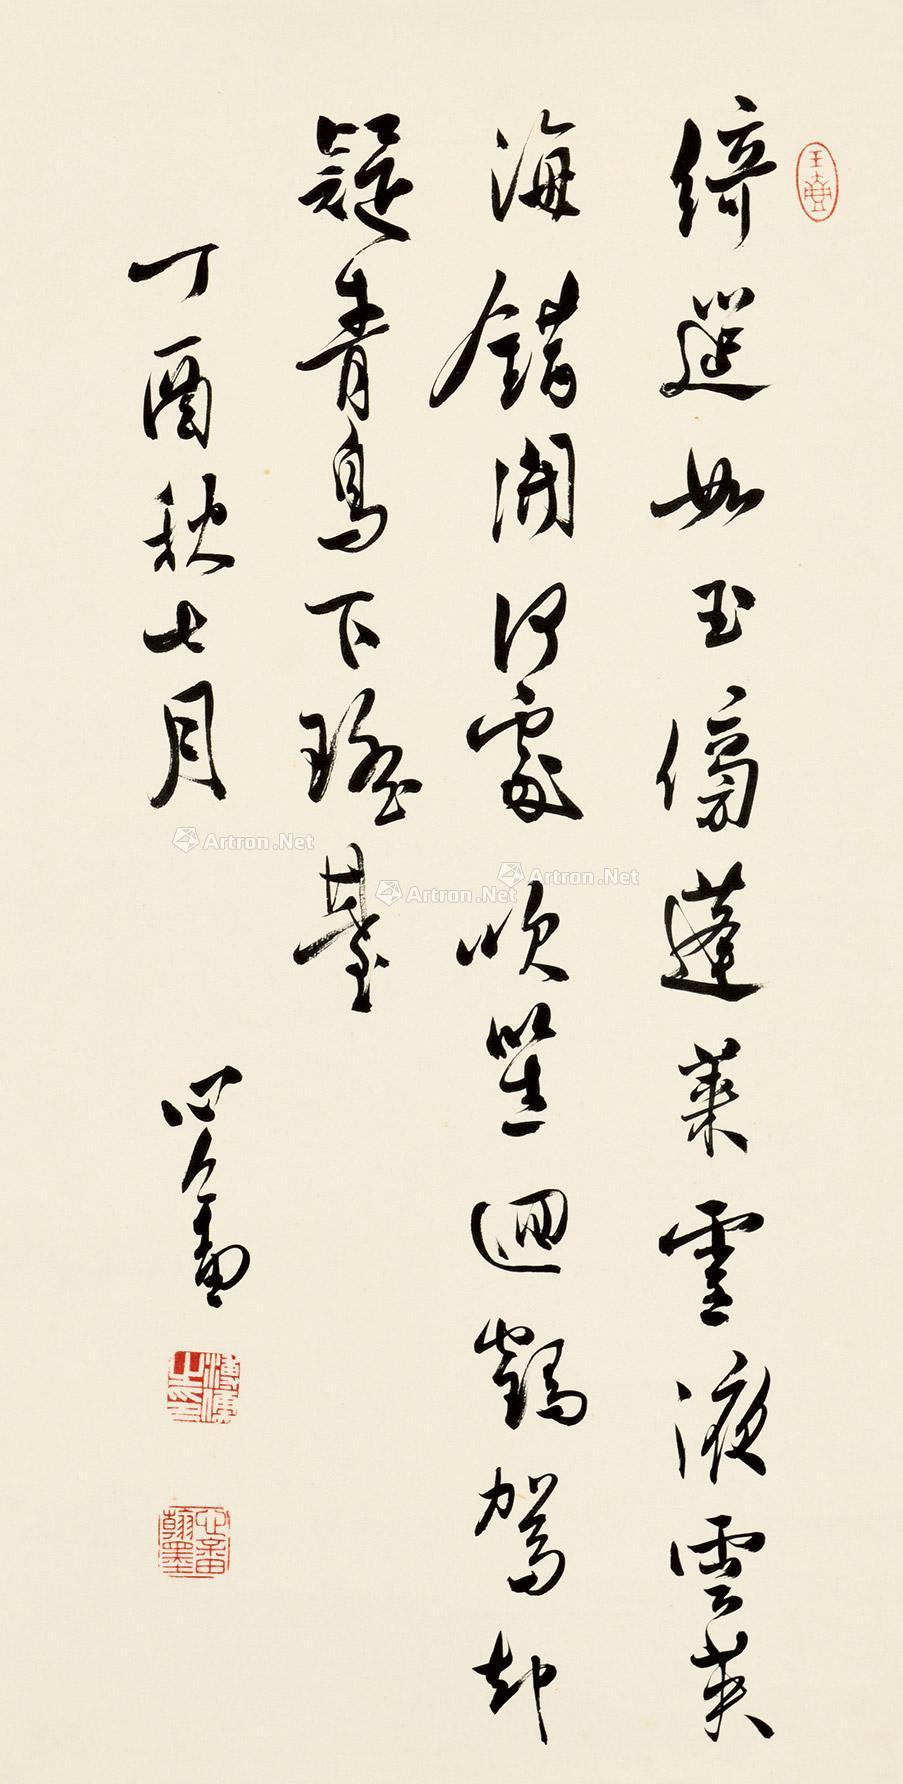 綺筵如玉傍蓬萊靈液雲英
海錯開何處吹笙迴鶴駕却
疑青鳥下瑤臺
丁酉秋七月
心畬
玉壺
溥儒之印
心畬翰墨
Artron.Net
Artron.Net
Artron.Net